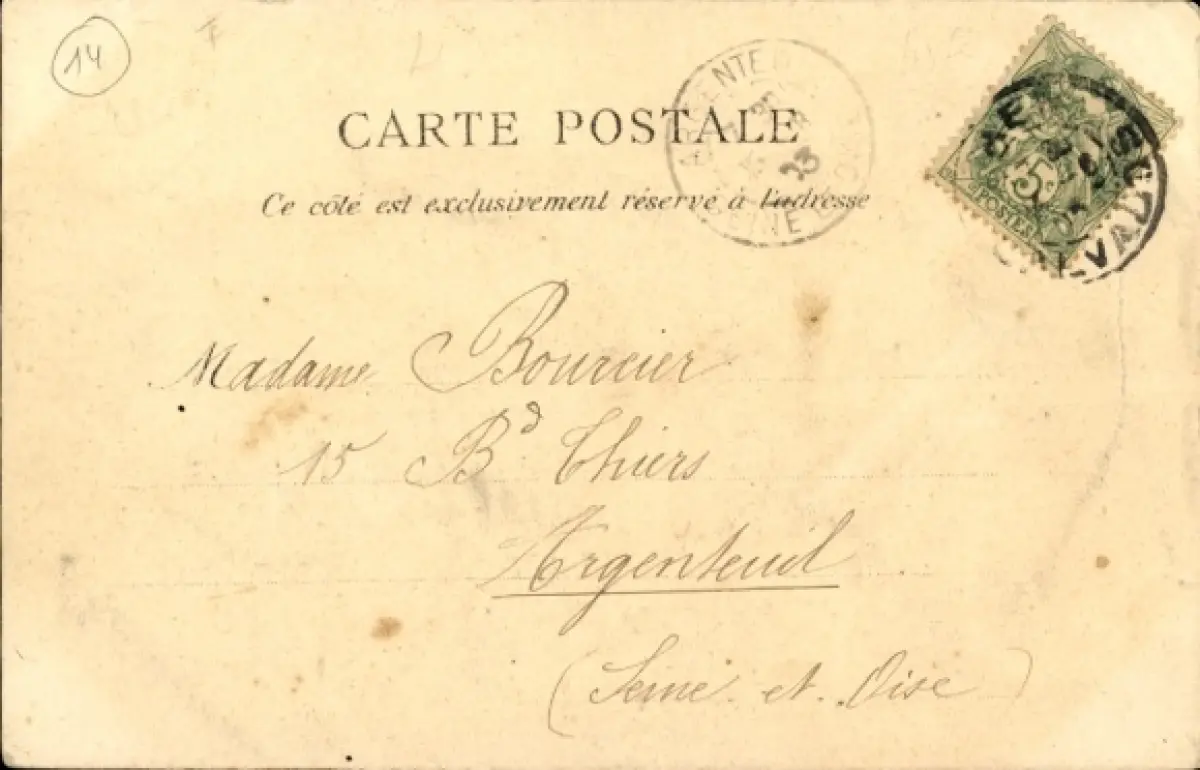 14
CARTE POSTALE
Ce côté est exclusivement réservé à l'adresse
ARGENTE
23
5c
POSTES
CALVADOS
Madame Bourcier
15 Bd Thiers
Argenteuil
(Seine et Oise)